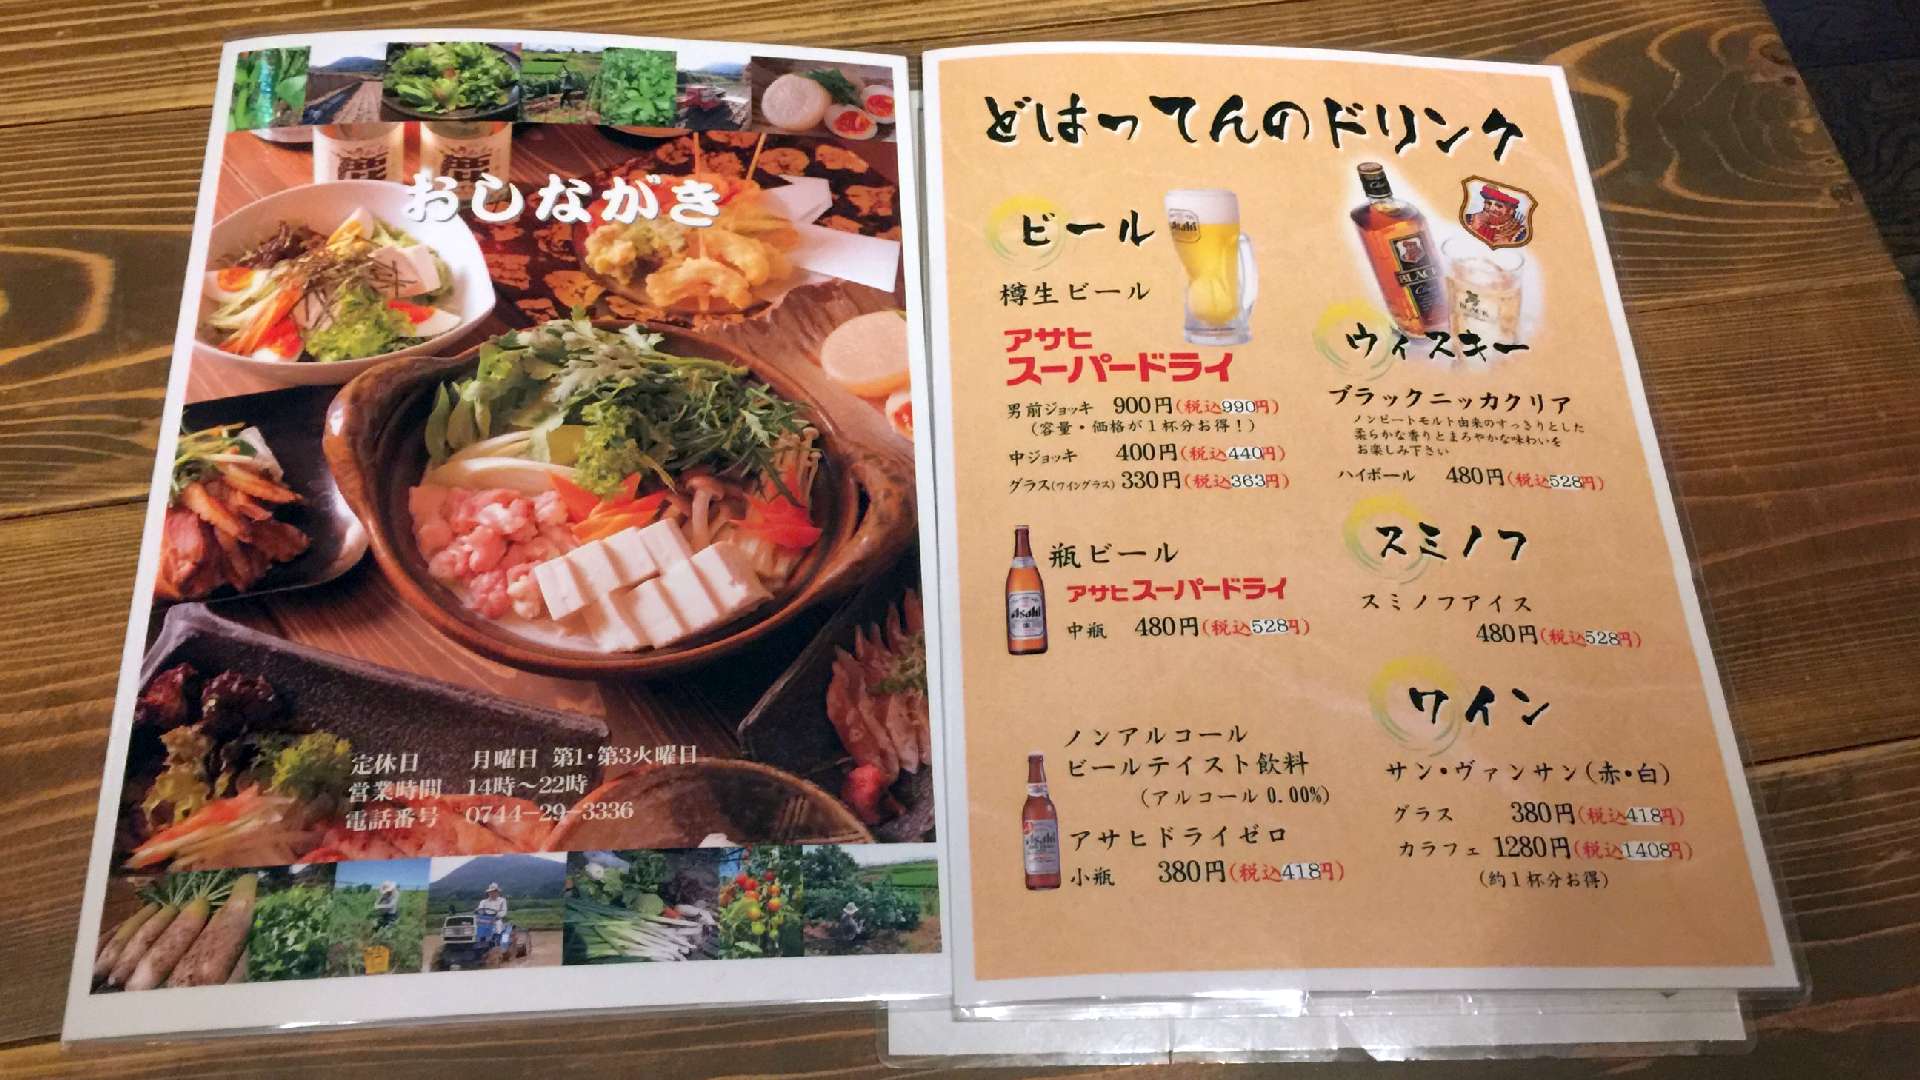 おしながき
定休日 月曜日 第1・第3火曜日
営業時間 14時〜22時
電話番号 0744-29-3336
どはってんのドリンク
ビール
樽生ビール
アサヒ
スーパードライ
男前ジョッキ 900円(税込990円)
(容量・価格が1杯分お得!)
中ジョッキ 400円(税込440円)
グラス(ワイングラス) 330円(税込363円)
瓶ビール
アサヒスーパードライ
中瓶 480円(税込528円)
ノンアルコール
ビールテイスト飲料
(アルコール0.00%)
アサヒドライゼロ
小瓶 380円(税込418円)
ウィスキー
ブラックニッカクリア
ノンピートモルト由来のすっきりとした
柔らかな香りとまろやかな味わいを
お楽しみ下さい
ハイボール 480円(税込528円)
スミノフ
スミノフアイス
480円(税込528円)
ワイン
サン・ヴァンサン(赤・白)
グラス 380円(税込418円)
カラフェ 1280円(税込1408円)
(約1杯分お得)
Asahi
BLACK
Asahi